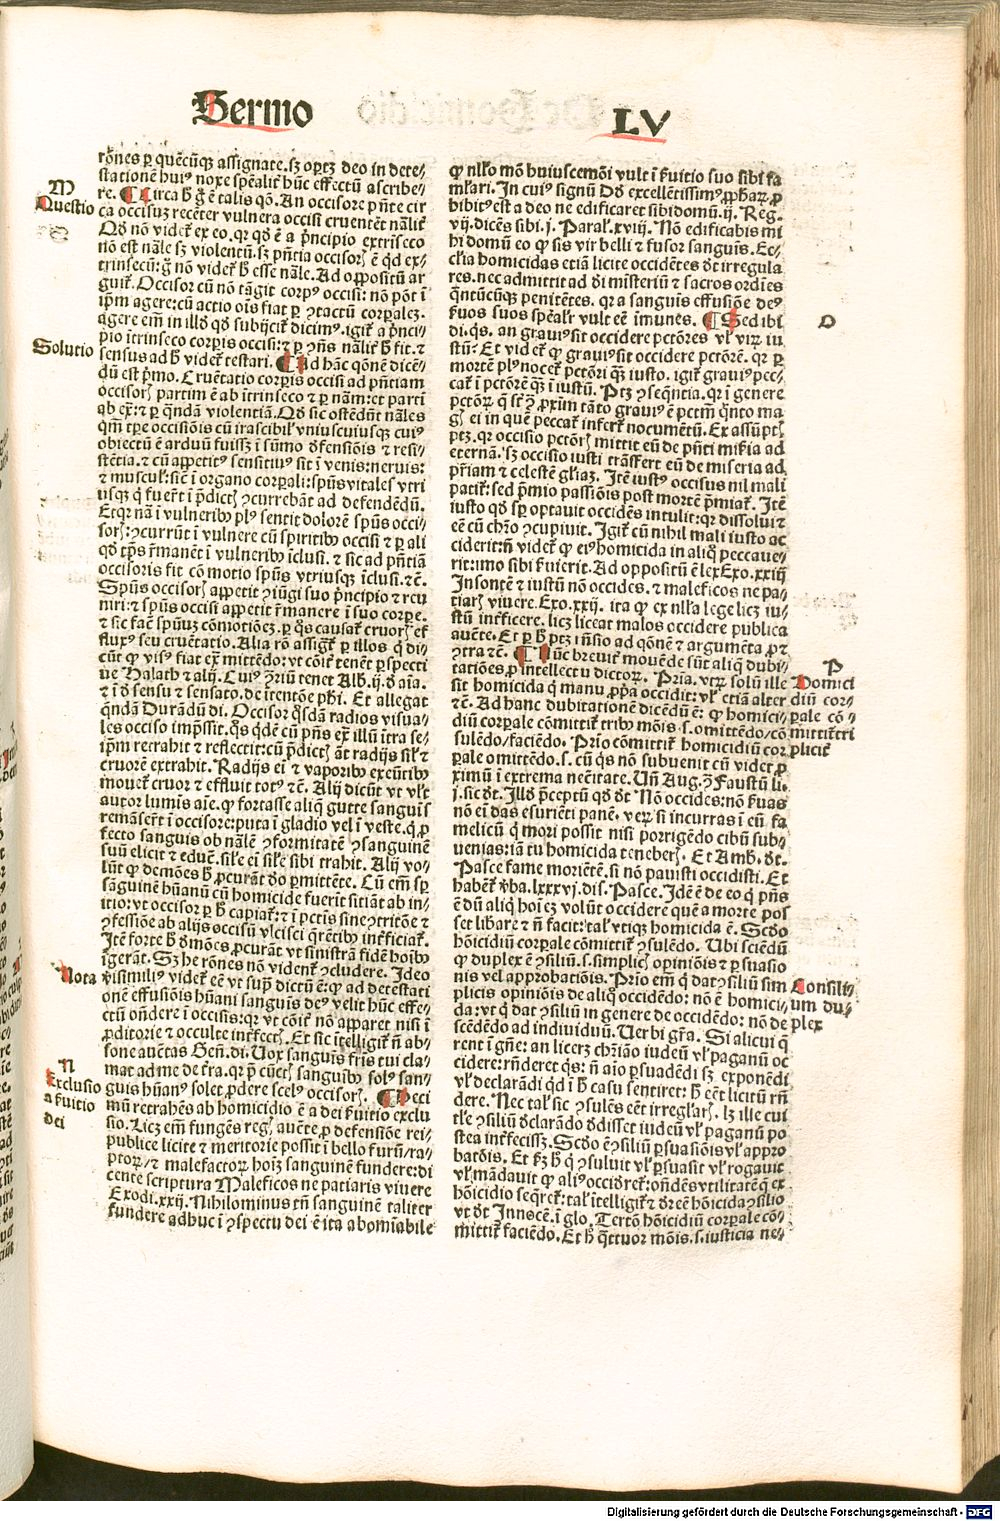 Sermo LV
rōnes ꝑ quēcūqꝫ assignate.sꝫ oꝑtꝫ deo in dete⸗
stationē huiꝰ noxe spēalit̄ hūc effectū ascribe⸗
re. ¶ Circa h̄ g̊ ē talis qō. An occisore pn̄te cir
ca occisuꝫ recēter vulnera occisi cruentēt nālit̄
Qd̄ nō videt̄ ex eo. qꝛ qd̄ ē a p̄ncipio extrīseco
nō est nāle sꝫ violentū.sꝫ pn̄tia occisorꝭ ē qd̄ ex⸗
trinsecū: g̊ nō videt̄ h̄ esse nāle. Ad oppositū ar
guit̄. Occisor cū nō tāgit corpꝰ occisi: nō pōt ī
ip̄m agere: cū actio oīs fiat ꝑ ꝯtactū corꝑaleꝫ.
agere em̄ in illd̄ qd̄ subijcit̄ dicimꝰ. igit̄ a p̄nci⸗
pio īt̄rinseco corꝑis occisi: ⁊ ꝑ ꝯn̄s nālit̄ h̄ fit. ⁊
sensus ad h̄ videt̄ testari. ¶ Ad hāc qōnē dicē⸗
dū est p̄mo. Cruētatio corꝑis occisi ad pn̄tiam
occisorꝭ partim ē ab īt̄rinseco ⁊ ꝑ nām: et partī
ab ex̄: ⁊ ꝑ quādā violentiā. Qd̄ sic ostēdūt nāles
qm̄ tꝑe occisiōis cū irascibilꝭ vniuscuiusqꝫ cuiꝰ
obiectū ē arduū fuissꝫ ī sūmo dfensiōis ⁊ resi⸗
stētia. ⁊ cū appetitꝰ sensitiuꝰ sit ī venis: neruis:
⁊ musculꝭ: sic̄ ī organo corꝑali: spūs vitales vtri
usqꝫ q̇ fuer̄t ī p̄dictꝭ ꝯcurrebāt ad defendēdū.
Et qꝛ nā ī vulneribꝰ plꝰ sentit dolorē spūs occi⸗
sorꝭ: ꝯcurrūt ī vulnere cū spiritibꝰ occisi ⁊ ꝑ ali
qd̄ tp̄s r̄manēt ī vulneribꝰ īclusi. ⁊ sic ad pn̄tiā
occisoris fit cōmotio spūs vtriusqꝫ īclusi. ⁊c̄.
Spūs occisorꝭ appetit ꝯiūgi suo p̄ncipio ⁊ reu
niri: ⁊ spūs occisi appetit r̄manere ī suo corpe.
⁊ sic fac̄ spūuꝫ cōmotiōeꝫ. ꝑ q̄s causat̄ cruorꝭ ef
fluxꝰ seu cruētatio. Alia rō assigt̄ ꝑ illos q̇ di⸗
cūt qꝙ visꝰ fiat ex̄ mittēdo: vt cōit̄ tenēt ꝑspecti
ue Halath ⁊ alij. Cuiꝰ ꝯriū tenet Alb. ij. d̄ aīa.
⁊ ī d̄ sensu ⁊ sensato. de itentōe ph̄i. Et allegat
quādā Durādū di. Occisor q̇sdā radios visua⸗
les occiso imp̄ssit. q̄s qdē cū pn̄s ex̄ illū īt̄ra se⸗
ip̄m retrahit ⁊ reflectit: cū p̄dictꝭ āt radijs silꝭ ⁊
cruorē extrahit. Radijs ei᷒ ⁊ vaporibꝰ exeūtibꝰ
mouet̄ cruor ⁊ effluit totꝰ ⁊c̄. Alij dicūt vt vlt̄
autor lumīs aīe. qꝙ fortasse aliq̄ gutte sanguīs
remāser̄t ī occisore: puta ī gladio vel ī veste. q̄ ꝑ
fecto sanguis ob nālē ꝯformitatē ꝯsanguinē
suū elicit ⁊ educ̄. sil̄e ei᷒ sil̄e sibi trahit. Alij vo⸗
lūt qꝙ demōes h̄ ꝓcurāt d̄o ꝑmittēte. Cū em̄ sꝑ
sanguinē hūanū cū homicide fuerīt sitiāt ab in⸗
itio: vt occisor ꝑ h̄ capiat̄: ⁊ ī pctīs sine ꝯtritōe ⁊
ꝯfessiōe ab alijs occisū vlcisci q̄rētibꝰ int̄ficiat̄.
Itē forte h̄ d̄mōes ꝓcurāt vt sinistrā fidē hoībꝰ
īgerāt. Sꝫ he rōnes nō vident̄ ꝯcludere. Ideo
v̇isimiliꝰ videt̄ eē vt suꝑ dictū ē: qꝙ ad detestati
onē effusiōis hūani sanguīs deꝰ velit hūc effe⸗
ctū on̄dere ī occisis: qꝛ vt cōit̄ nō apparet nisi ī
ꝓditorie ⁊ occulte int̄fectꝭ. Et sic itelligit̄ n̄ ab⸗
sone auētas Gen̄. di. Vox sanguīs fr̄is tui cla⸗
mat ad me de t̄ra. qꝛ p̄ cūctꝭ sanguībꝰ solꝰ san⸗
guis hūanꝰ solet ꝓdere scelꝰ occisorꝭ. ¶ Deci
mū retrahēs ab homicidio ē a dei s̄uitio exclu
sio. Licꝫ em̄ fungēs regꝭ auc̄te ꝓ defensiōe rei⸗
publice licite ⁊ meritorie possit ī bello furū/ra⸗
ptoꝝ/⁊ malefactoꝝ hoīꝫ sanguinē fundere: di
cente scriptura Maleficos ne patiaris viuere
Exodi. xxij. Nihilominus tn̄ sanguinē taliter
fundere adhuc ī ꝯspectu dei ē ita abomīabile
qꝙ nll̄o mō huiuscemōi vult ī s̄uitio suo sibi fa
ml̄ari. In cuiꝰ signū Dd̄ excellētissimꝰ ꝓphaꝝ ꝓ
hibitꝰ est a deo ne edificaret sibi domū. ij. Reg.
vij. dicēs sibi. j. Paral. xviij. Nō edificabis mi
hi domū eo qꝙ sis vir belli ⁊ fusor sanguīs. Ec⸗
cl̄ia homicidas etiā licite occidētes d̄t irregula
res. nec admittit ad d̄i misteriū ⁊ sacros ordīes
q̄ntūcūqꝫ penitētes. qꝛ a sanguīs effusiōe deꝰ
s̄uos suos spēalr̄ vult eē īmunes. ¶ Sed ibi
di. qs. an grauiꝰ sit occidere pctōres vl̄ viꝝ iu
stū: Et videt̄ qꝙ grauiꝰ sit occidere pctōrē. qꝛ ꝑ
mortē plꝰ nocet̄ pctōri qꝫ iusto. igit̄ grauiꝰ pec⸗
cat̄ ī pctōrē qꝫ ī iustū. Ptꝫ ꝯseqn̄tia. qꝛ ī genere
pctōꝝ q̄ sūt ī ꝓxim̄ tāto grauiꝰ ē pctm̄ q̄nto ma
gꝭ ei in quē peccat̄ infert̄ nocumētū. Ex assūptꝭ
ptꝫ. qꝛ occisio pctōrꝭ mittit eū de pn̄ti mis̄ia ad
eternā. sꝫ occisio iusti trāsfert eū de miseria ad
pr̄iam ⁊ celestē gl̄iaꝫ. Itē iustꝰ occisus nil mali
patit̄: sed p̄mio passiōis post mortē p̄miat̄. Itē
iusto qd̄ sꝑ optauit occidēs intulit: qꝛ dissolui ⁊
eē cū chr̄o ꝯcupiuit. Igit̄ cū nihil mali iusto ac
ciderit: n̄ videt̄ qꝙ eiꝰ homicida in aliq̊ peccaue⸗
rit: imo sibi s̄uierit. Ad oppositū ē lex Exo. xxiij
Insontē ⁊ iustū nō occides. ⁊ maleficos ne pa⸗
tiarꝭ viuere. Exo. xxij. ita qꝙ ex nll̄a lege licꝫ iu⸗
stū int̄ficere. licꝫ liceat malos occidere publica
auc̄te. Et ꝑ h̄ ptꝫ rn̄sio ad qōnē ⁊ argumēta ꝓ ⁊
ꝯtra ⁊c̄. ¶ Nūc breuit̄ mouēde sūt aliq̄ dubi⸗
tatiōes ꝓ intellectu dictoꝝ. Pria. vtꝝ solū ille
sit homicida q̇ manu ꝓpa occidit: vl̄ etiā alter
⁊c̄. Ad hanc dubitationē dicēdū ē: qꝙ homici⸗
diū corꝑale cōmittit̄ tribꝰ mōis. s. omittēdo/cō
sulēdo/faciēdo. Prio cōmittit̄ homicidiū cor
ꝑale omittēdo. s. cū q̇s nō subuenit cū videt ꝓ
ximū ī extrema ncc̄itate. Vn̄ Aug. ꝯ Faustū li.
j. sic d̄t. Illd̄ p̄ceptū qd̄ d̄t Nō occides: nō s̄uas
nō ei das esuriēti panē. veꝝ si incurras ī eū fa
melicū q̇ mori possit nisi porrigēdo cibū sub⸗
uenias: iā tu homicida teneberꝭ. Et Amb. d̄t.
Pasce fame moriētē. si nō pauisti occidisti. Et
habet̄ v̇ba. lxxxvj. dis. Pasce. Idē ē de eo q̇ pn̄s
ē dū aliq̇ hoīeꝫ volūt occidere quē a morte pos
set libare ⁊ n̄ facit: tal̄ vtiqꝫ homicida ē. Scd̄o
hōicidiū corꝑale cōmittit̄ ꝯsulēdo. Vbi sciēdū
qꝙ duplex ē ꝯsiliū. s. simplicꝭ opiniōis ⁊ ꝑsuasio
nis vel approbatiōis. Prio em̄ q̇ dat ꝯsiliū sim
plicis opiniōis de aliq̊ occidēdo: nō ē homici⸗
da: vt q̇ dat ꝯsiliū in genere de occidēdo: nō de
scēdēdo ad indiuiduū. Verbi gr̄a. Si alicui q̄
rent ī gn̄e: an liceꝫ chr̄iāo iudeū vl̄ paganū oc
cidere: rn̄deret qs: n̄ aīo ꝑsuadēdi sꝫ exponēdi
vl̄ declarādi qd̄ ī h̄ casu sentiret: h̄ eēt licitū rn̄
dere. Nec tal̄ sic ꝯsulēs eēt irregl̄arꝭ. lꝫ ille cui
tl̄e ꝯsiliū d̄clarādo d̄disset iudeū vl̄ paganū po
stea int̄fecissꝫ. Scd̄o ē ꝯsiliū ꝑsuasiōis vl̄ appro
batōis. Et s̄ꝫ h̄ q̇ ꝯsuluit vl̄ ꝑsuasit vl̄ rogauit
vl̄ mādauit qꝙ aliꝰ occid̄ret̄: on̄dēs vtilitatē q̄ ex
hōicidio seq̄ret̄: tal̄ itelligit̄ ⁊ d̄reē hōicida ꝯsilio
vt d̄t Innocē. ī glo. Tertō hōicidiū corꝑale cō⸗
mittit̄ faciēdo. Et h̄ q̄ttuor mōis. s. iusticia ne⸗
M
Questio
Solutio
Nota
N
Exclusio
a s̄uitio
dei
O
P
Homici
diū cor⸗
ꝑale cō⸗
mittit̄ tri
plicit̄
Consili⸗
um du⸗
plex
Digitalisierung gefördert durch die Deutsche Forschungsgemeinschaft - DFG